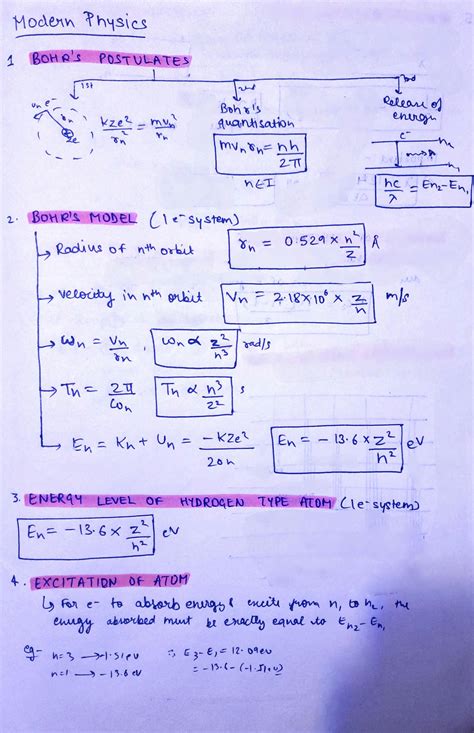 Modern Physics
1 BOHR'S POSTULATES
1st 2nd 3rd
vn e-
rn
ze
kze²/rn² = mvn²/rn
Bohr's quantisation
mvnrn = nh/2π
n∈I
Release of energy
e- n2
n1
hc/λ = En2-En1
2. BOHR'S MODEL (1e-system)
Radius of nth orbit rn = 0.529 × n²/Z Å
velocity in nth orbit Vn = 2.18×10⁶ × Z/n m/s
ωn = vn/rn , ωn ∝ z²/n³ rad/s
Tn = 2π/ωn Tn ∝ n³/z² s
En = Kn + Un = -KZe²/2rn En = -13.6 × z²/n² eV
3. ENERGY LEVEL OF HYDROGEN TYPE ATOM (1e-system)
En = -13.6 × z²/n² eV
4. EXCITATION OF ATOM
↳ For e- to absorb energy & excite from n1 to n2, the
energy absorbed must be exactly equal to En2-En1
eg- n=3 → -1.51eV ∴ E3-E1 = 12.09eV
n=1 → -13.6 eV = -13.6-(-1.51eV)